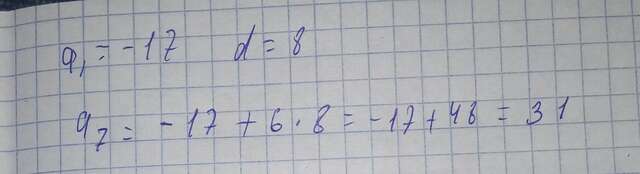 a₁ = -17 d = 8
a₇ = -17 + 6 · 8 = -17 + 48 = 31